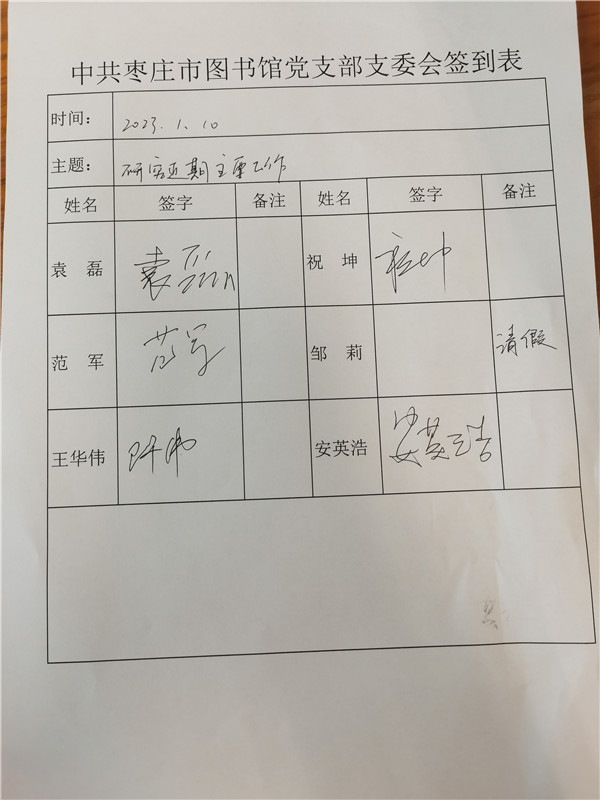 中共枣庄市图书馆党支部支委会签到表
时间： 2023. 1. 10
主题： 研究近期主要工作
姓名 签字 备注 姓名 签字 备注
袁 磊 袁磊 祝 坤 祝坤
范 军 范军 邹 莉 请假
王华伟 安英浩 安英浩